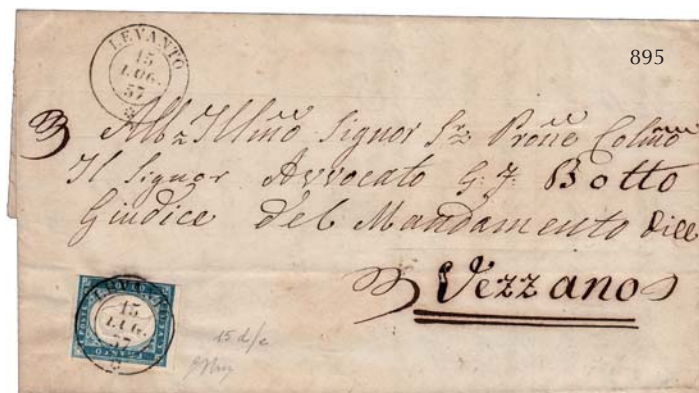 LEVANTO
15
LUG.
57
895
All Illmo Signor Sr Prone Colmo
Il Signor Avvocato G. J. Botto
Giudice del Mandamento di
Vezzano
15
LUG.
57
15 d/c